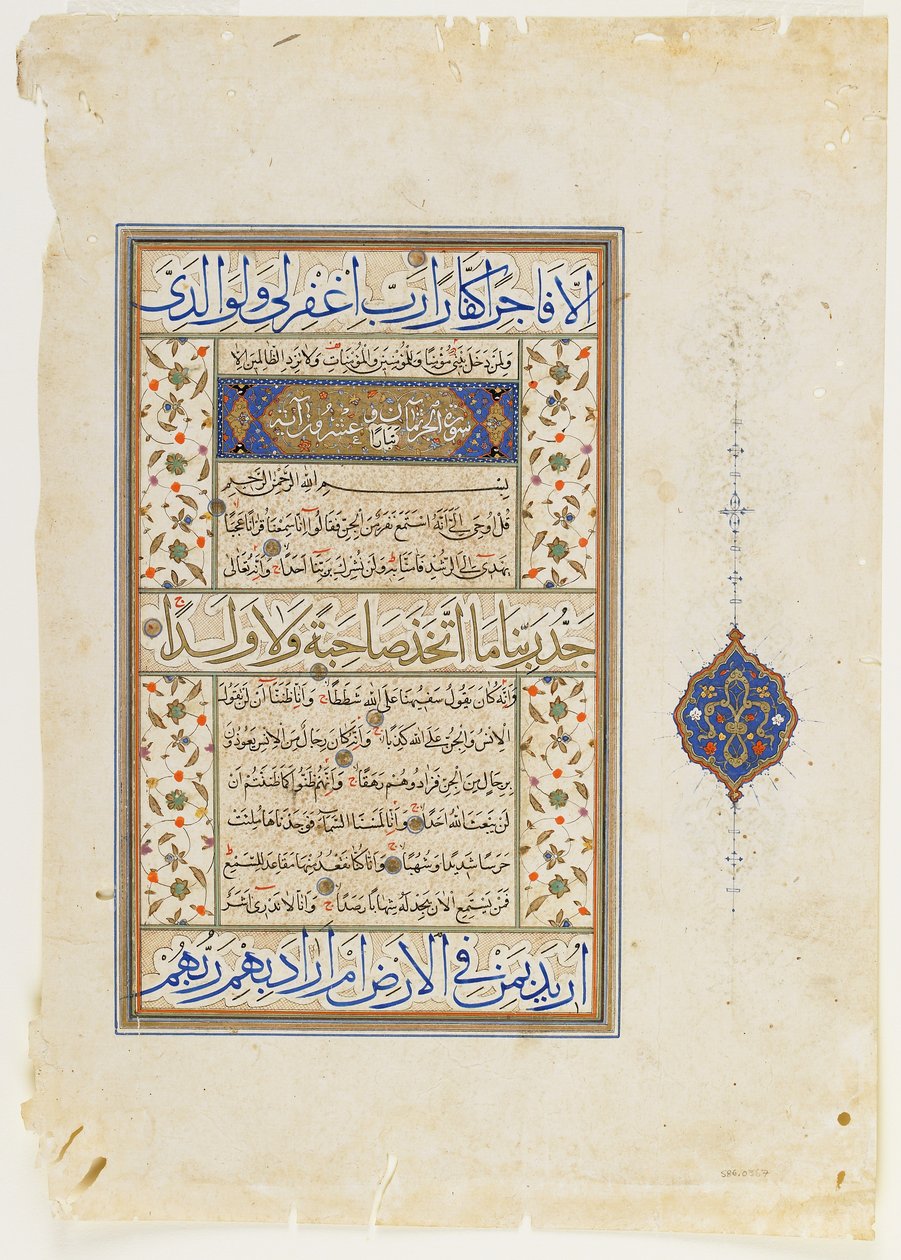 اِلَّا فَاجِرًا كَفَّارًا رَبِّ اغْفِرْ لِي وَلِوَالِدَيَّ
وَلِمَنْ دَخَلَ بَيْتِيَ مُؤْمِنًا وَلِلْمُؤْمِنِينَ وَالْمُؤْمِنَاتِ وَلَا تَزِدِ الظَّالِمِينَ اِلَّا
سورة الجن ثمان و عشرون آية
تبارا
بِسْمِ اللهِ الرَّحْمٰنِ الرَّحِيمِ
قُلْ اُوحِيَ اِلَيَّ اَنَّهُ اسْتَمَعَ نَفَرٌ مِنَ الْجِنِّ فَقَالُوا اِنَّا سَمِعْنَا قُرْاٰنًا عَجَبًا
يَهْدِي اِلَى الرُّشْدِ فَاٰمَنَّا بِهِ وَلَنْ نُشْرِكَ بِرَبِّنَا اَحَدًا ج وَاَنَّهُ تَعَالٰى
جَدُّ رَبِّنَا مَا اتَّخَذَ صَاحِبَةً وَلَا وَلَدًا ج
وَاَنَّهُ كَانَ يَقُولُ سَفِيهُنَا عَلَى اللهِ شَطَطًا ج وَاَنَّا ظَنَنَّا اَنْ لَنْ تَقُولَ
الْاِنْسُ وَالْجِنُّ عَلَى اللهِ كَذِبًا ج وَاَنَّهُ كَانَ رِجَالٌ مِنَ الْاِنْسِ يَعُوذُونَ
بِرِجَالٍ مِنَ الْجِنِّ فَزَادُوهُمْ رَهَقًا ج وَاَنَّهُمْ ظَنُّوا كَمَا ظَنَنْتُمْ اَنْ
لَنْ يَبْعَثَ اللهُ اَحَدًا ج وَاَنَّا لَمَسْنَا السَّمَاءَ فَوَجَدْنَاهَا مُلِئَتْ
حَرَسًا شَدِيدًا وَشُهُبًا ج وَاَنَّا كُنَّا نَقْعُدُ مِنْهَا مَقَاعِدَ لِلسَّمْعِ ط
فَمَنْ يَسْتَمِعِ الْاٰنَ يَجِدْ لَهُ شِهَابًا رَصَدًا ج وَاَنَّا لَا نَدْرِي اَشَرٌّ
اُرِيدَ بِمَنْ فِي الْاَرْضِ اَمْ اَرَادَ بِهِمْ رَبُّهُمْ
S86.0367